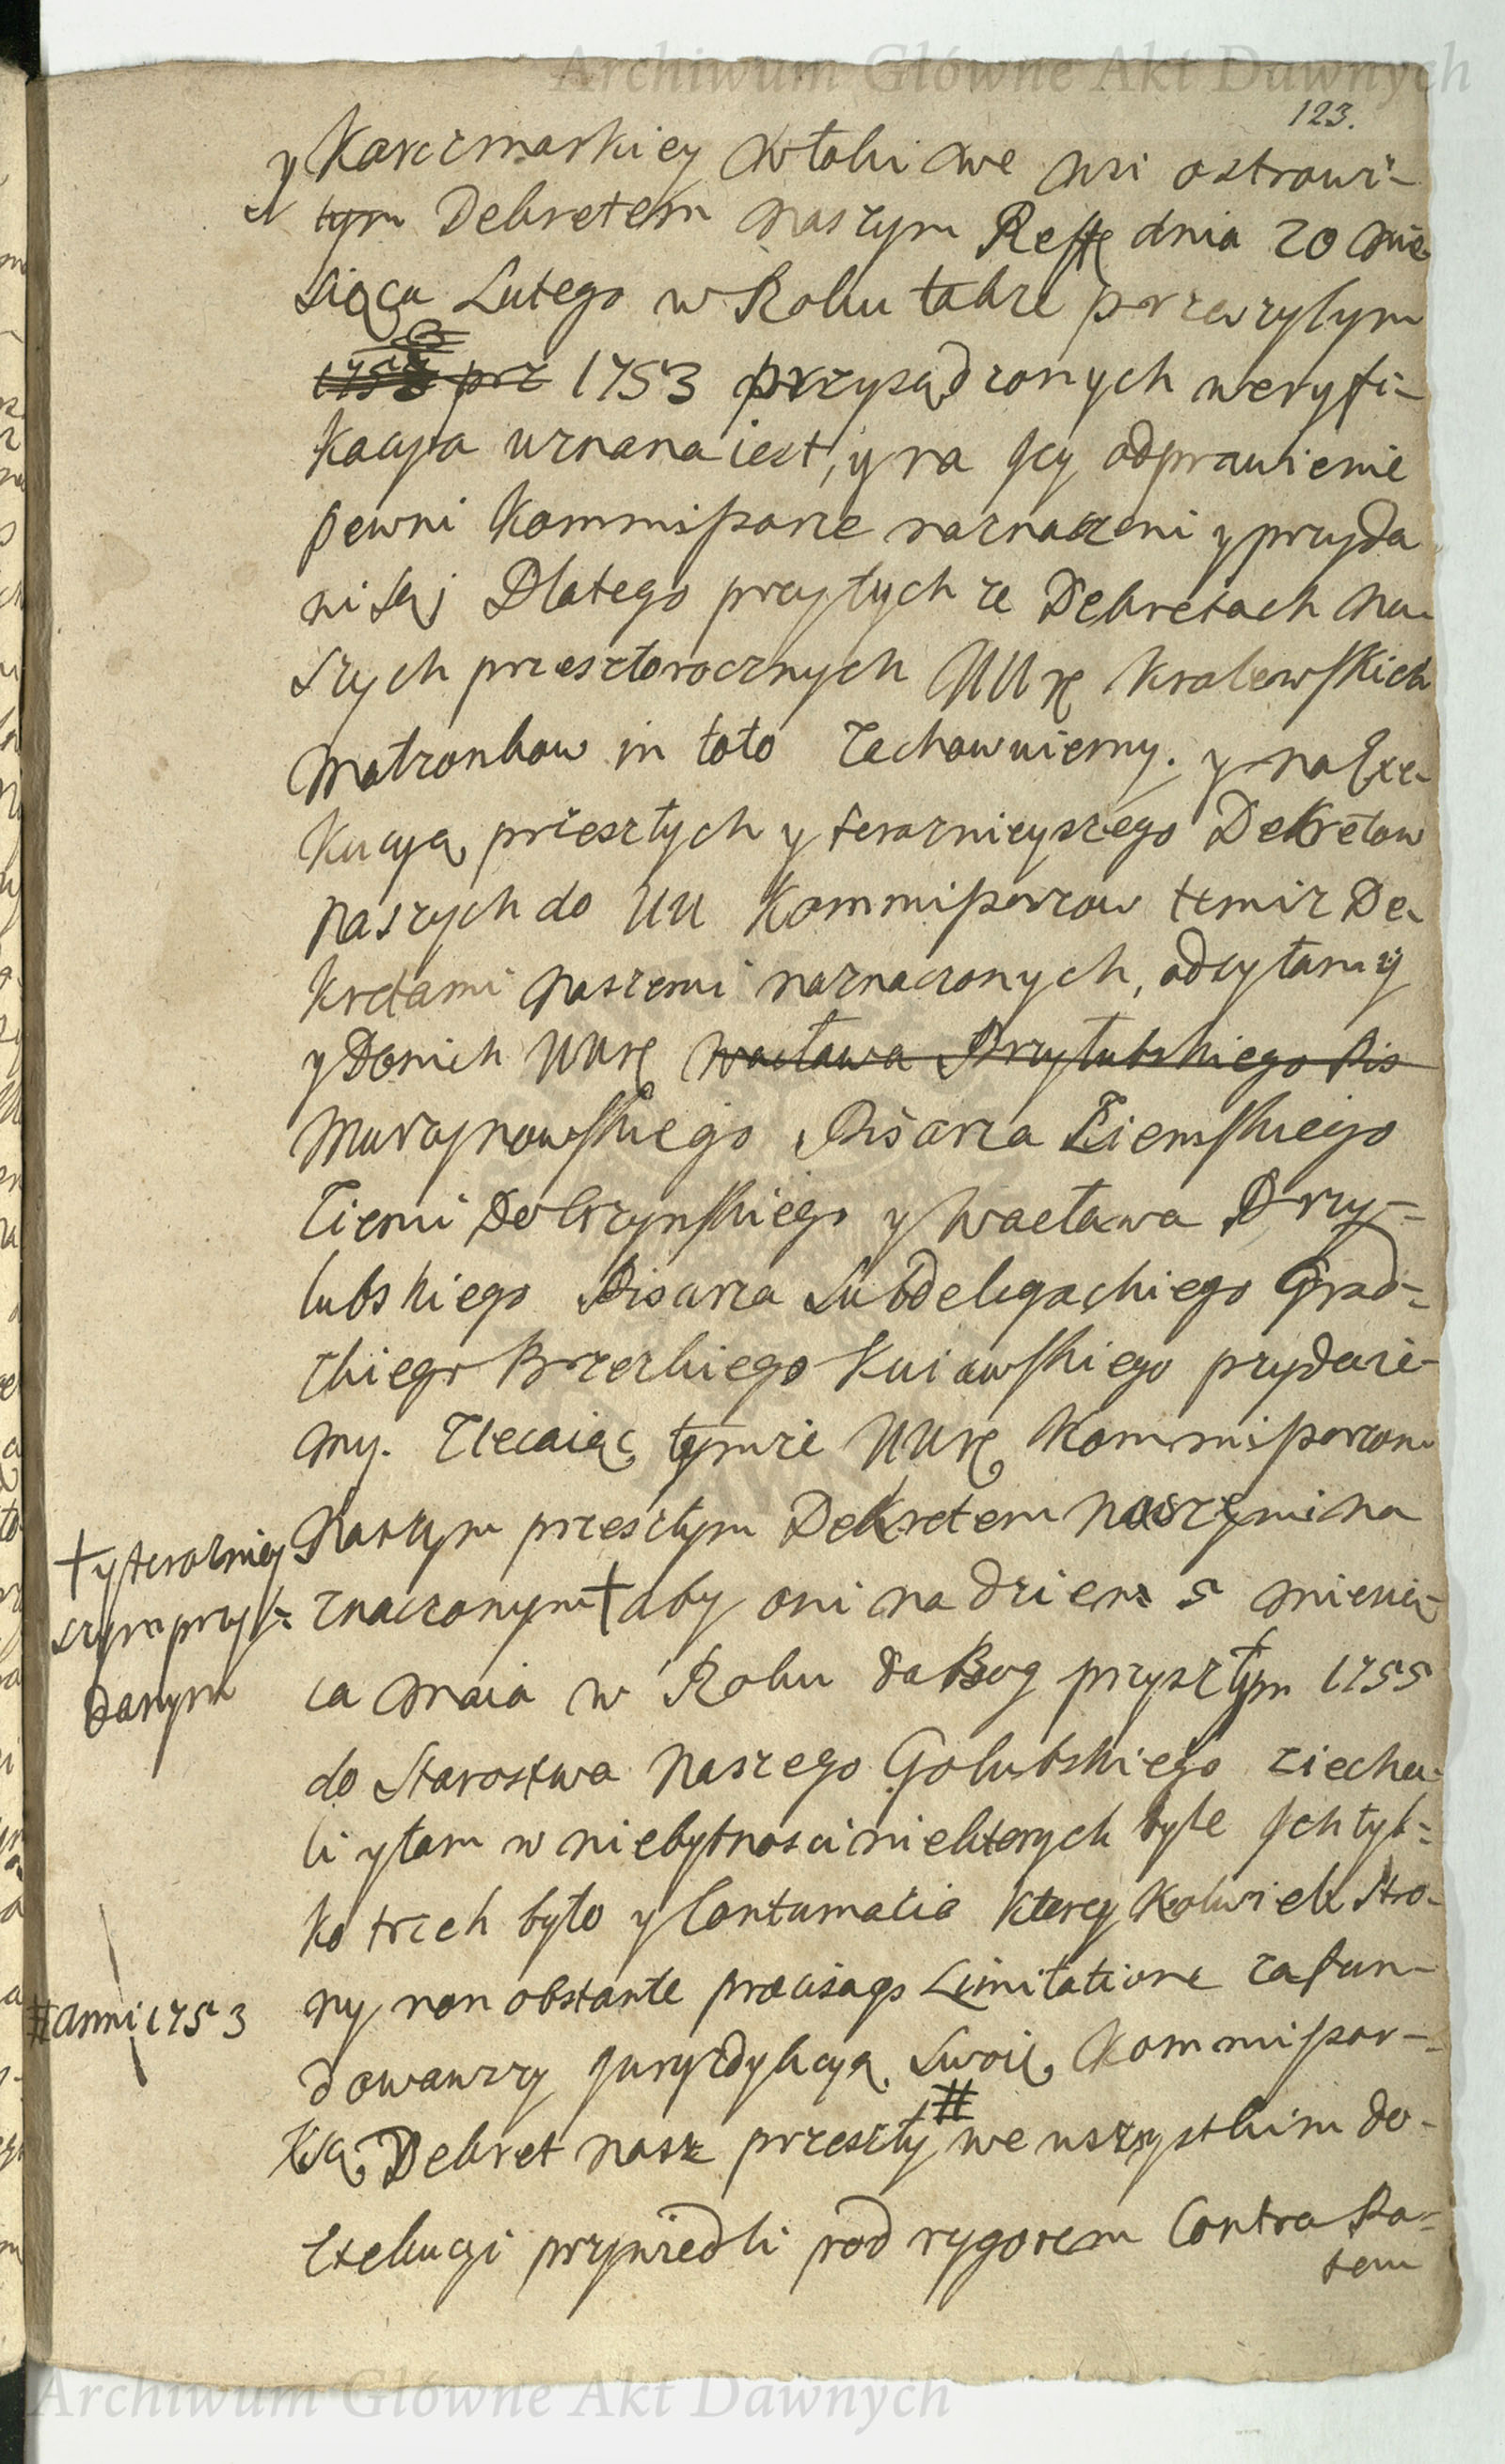 Archiwum Główne Akt Dawnych
123.
y Karczmarkiey Włoki we wsi ostrowi-
tym Dekretem naszym Reffę dnia 20 mie
siąca Lutego w Roku także przeszłym
1753 prz 1753 przysądzonych weryfi-
kacya uznana iest, y na Jey odprawienie
pewni Kommissarze naznaczeni y przyda
ni są; Dlatego przy tych ze Dekretach na-
szych przeszłorocznych UUrę Kralewskich
Małzonkow in toto zachowuiemy. y na Exe-
kucyą przeszłych y teraznieyszego Dekretow
naszych do UU Kommissarzow temiz De-
kretami naszemi naznaczonych, odsyłamy
y Donich UUrę Wacława Przyłubskiego Pis
Murzynowskiego Pisarza Ziemskiego
Ziemi Dobrzynskiego y Wacława Przy-
lubskiego Pisarza Subdelegackiego Grod-
zkiego Brzezkiego Kuiawskiego przydaie-
my. Zlecaiąc tymże UUrę Kommissarzom
Naszym przeszłym Dekretem naszymi na
znaczonym † aby oni na dzien 5 miesią-
† y terazniey
szym przy-
danym
ca Maia w Roku da Bog przyszłym 1755
do Starostwa Naszego Golubskiego ziecha-
li y tam w niebytnosci niektorych byle Jch tyl-
ko trzech było y Contumacia ktorey kolwiek Stro-
ny non obstante praecisaqs Limitatione zafun-
# Anni 1753
dowawszy Juryzdykcyą Swoię Kommissar-
ską, Dekret nasz przeszły # we wszystkim do-
Exekucyi przywiedli pod rygorem Contra Ra-
tem
Archiwum Główne Akt Dawnych